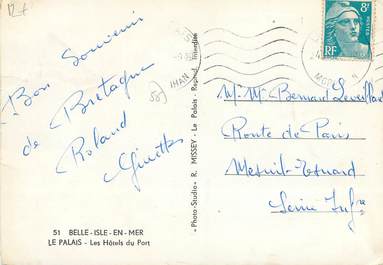 Bon Souvenir
de Bretagne
Roland
Ginette
51 BELLE-ISLE-EN-MER
LE PALAIS - Les Hôtels du Port
Photo-Studio - R. MISSEV - Le Palais - Reprod. Interdite
8F
POSTES
RF
MORBIHAN
M. Mme Bernard Leveillard
Route de Paris
Mesnil-Esnard
Seine Infre